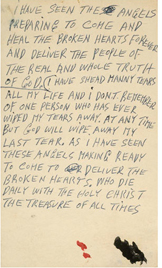 I HAVE SEEN THESE ANGELS
PREPARING TO COME AND
HEAL THE BROKEN HEARTS FOREVER
AND DELIVER THE PEOPLE OF
THE REAL AND WHOLE TRUTH
OF GOD. I HAVE SHEAD MANNY TEARS
ALL MY LIFE AND I DONT REMEMBER
OF ONE PERSON WHO HAS EVER
WIPED MY TEARS AWAY, AT ANY TIME
BUT GOD WILL WIPE AWAY MY
LAST TEAR, AS I HAVE SEEN
THESE ANGELS MAKING READY
TO COME TO DELIVER THE
BROKEN HEARTS, WHO DIE
DAILY WITH THE HOLY CHRIST
THE TREASURE OF ALL TIMES